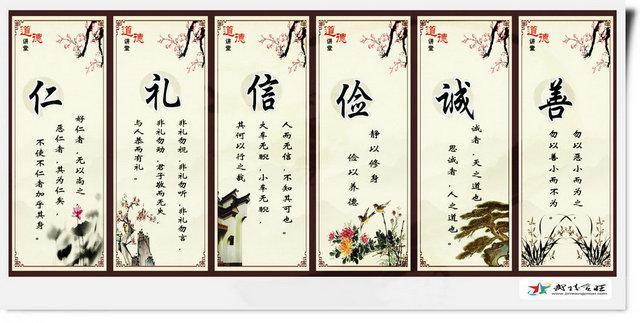 道德
讲堂
仁
好仁者，无以尚之
恶仁者，其为仁矣，
不使不仁者加乎其身。
道德
讲堂
礼
非礼勿视，非礼勿听，非礼勿言，
非礼勿动，君子敬而无失
与人恭而有礼。
道德
讲堂
信
人而无信，不知其可也。
大车无，小车无，
其何以行之哉
道德
讲堂
俭
静以修身
俭以养德
道德
讲堂
诚
诚者，天之道也
思诚者，人之道也。
道德
讲堂
善
勿以恶小而为之
勿以善小而不为